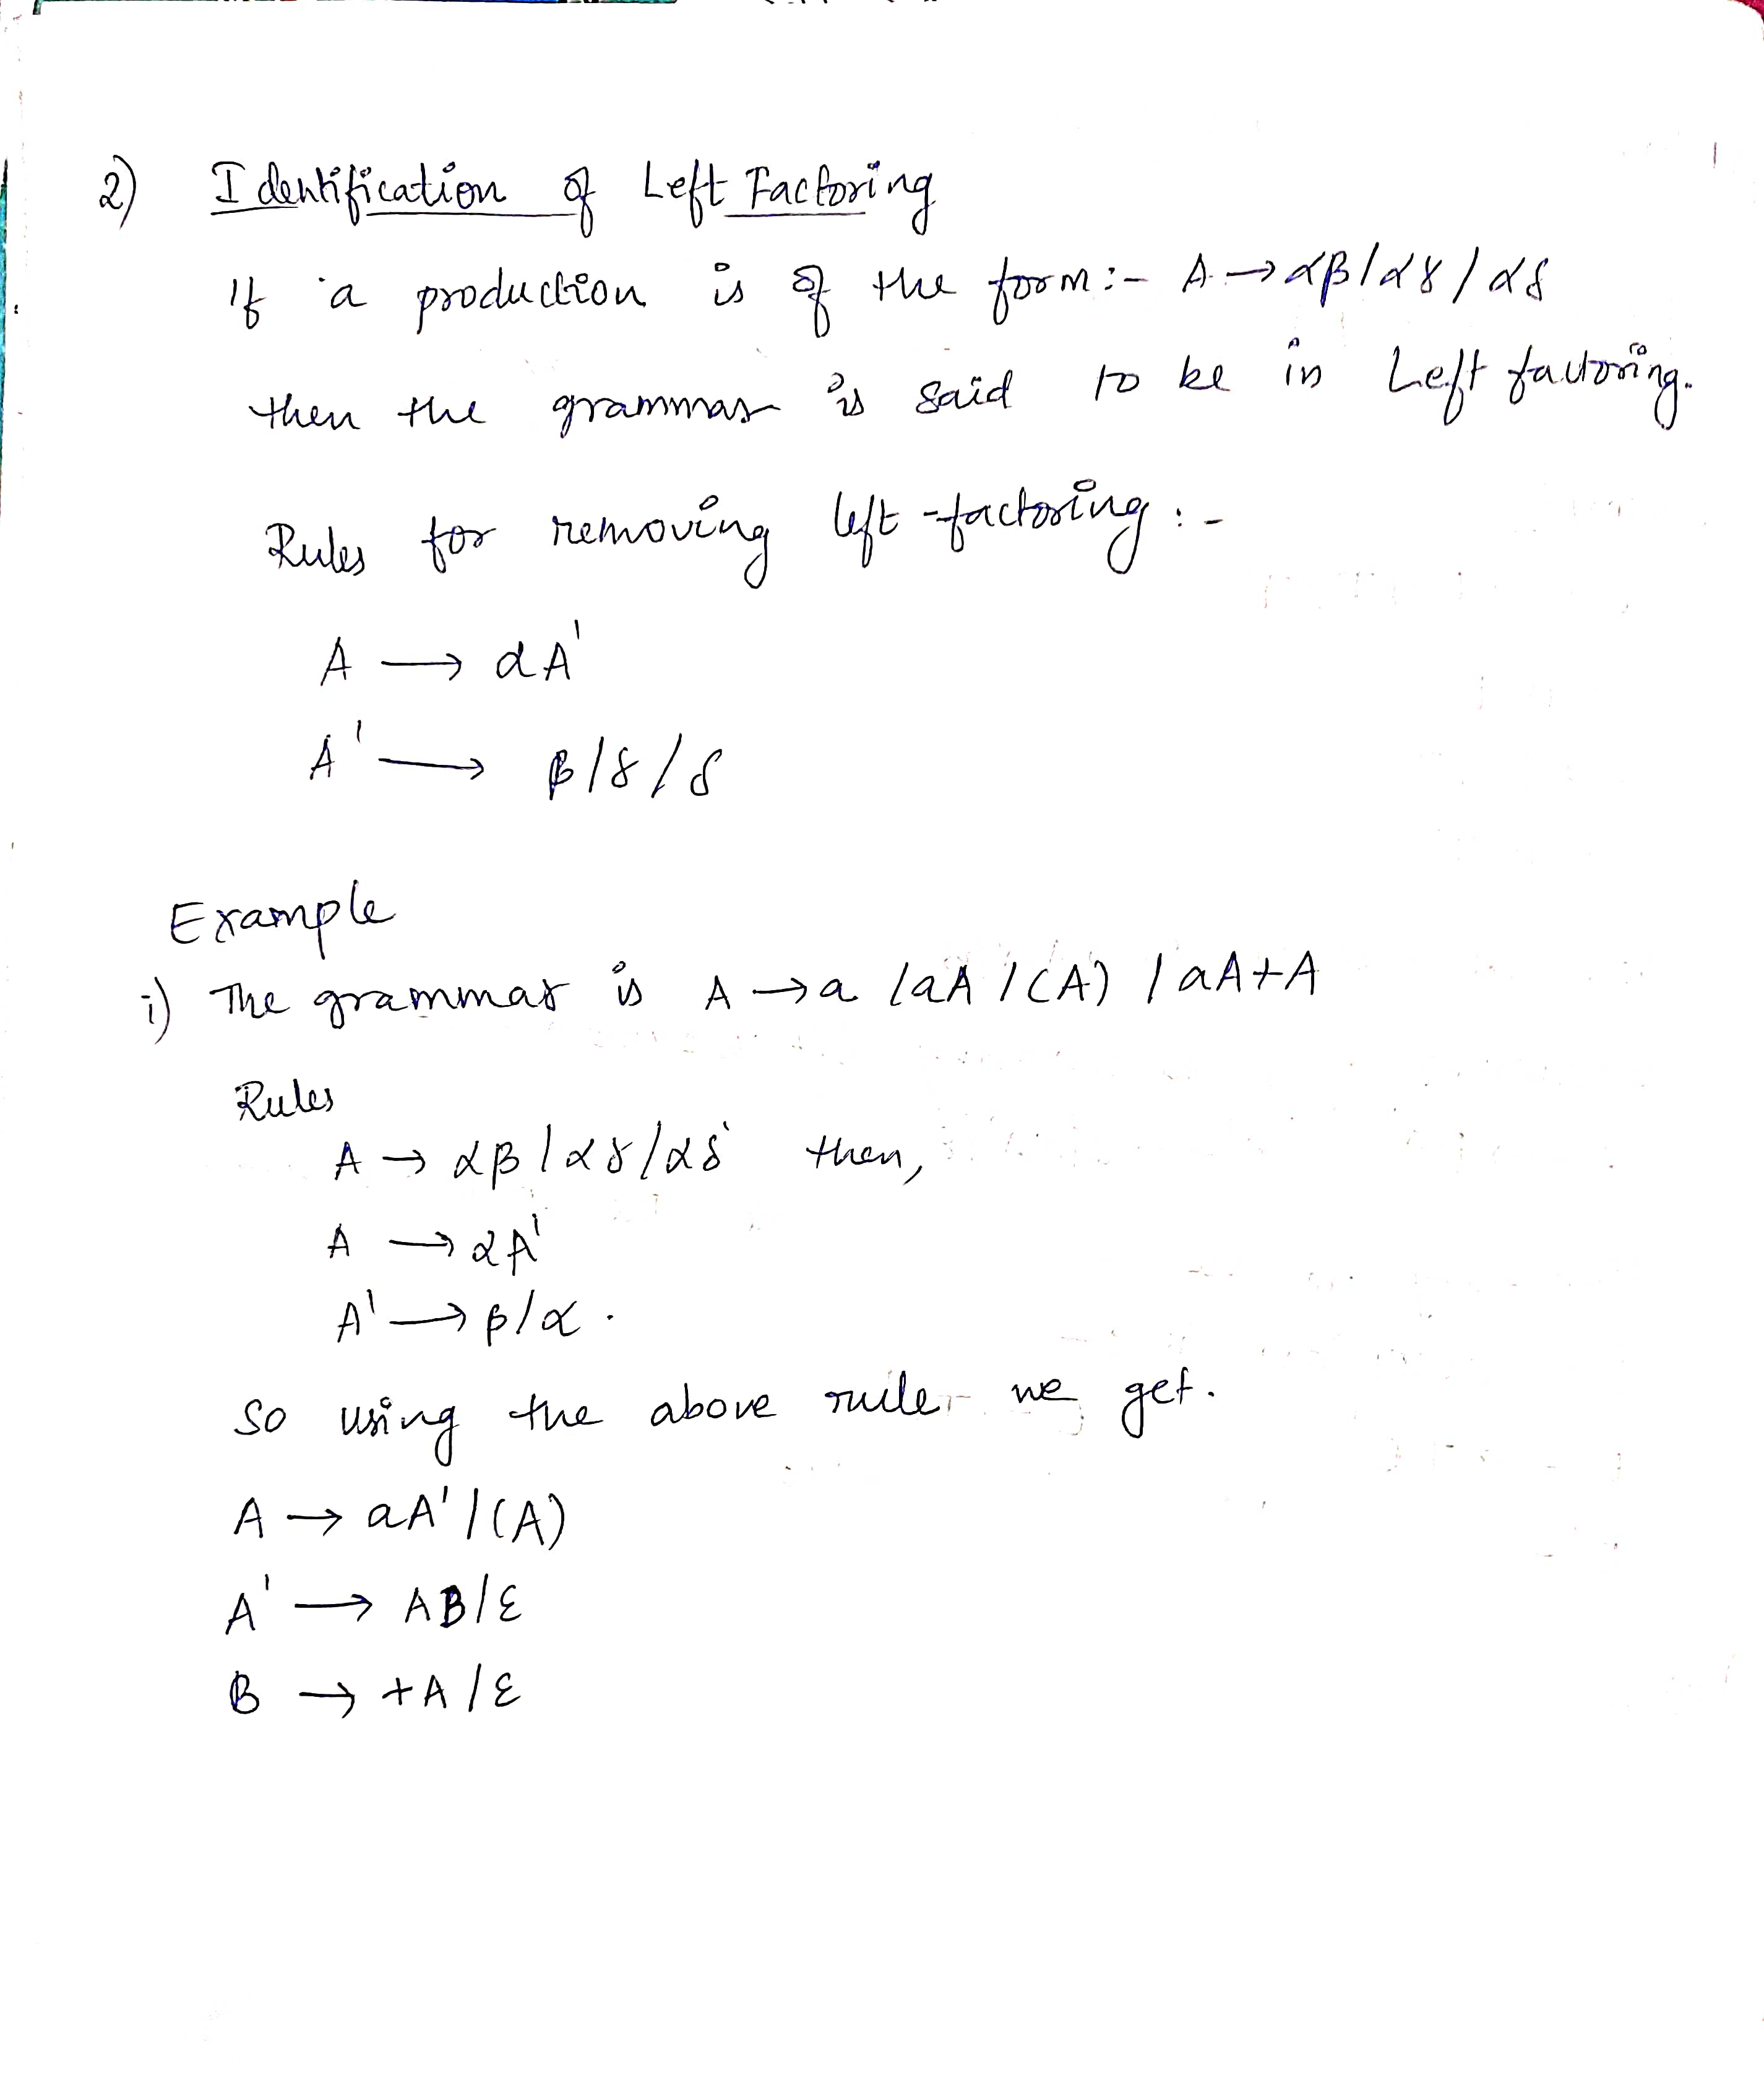 2) Identification of Left Factoring
If a production is of the form :- A → αβ / αγ / αδ
then the grammar is said to be in Left factoring.
Rules for removing left-factoring :-
A → αA'
A' → β / γ / δ
Example
i) The grammar is A → a / aA / (A) / aA+A
Rules
A → αβ / αγ / αδ then,
A → αA'
A' → β / α .
So using the above rule we get.
A → aA' / (A)
A' → AB / ε
B → +A / ε